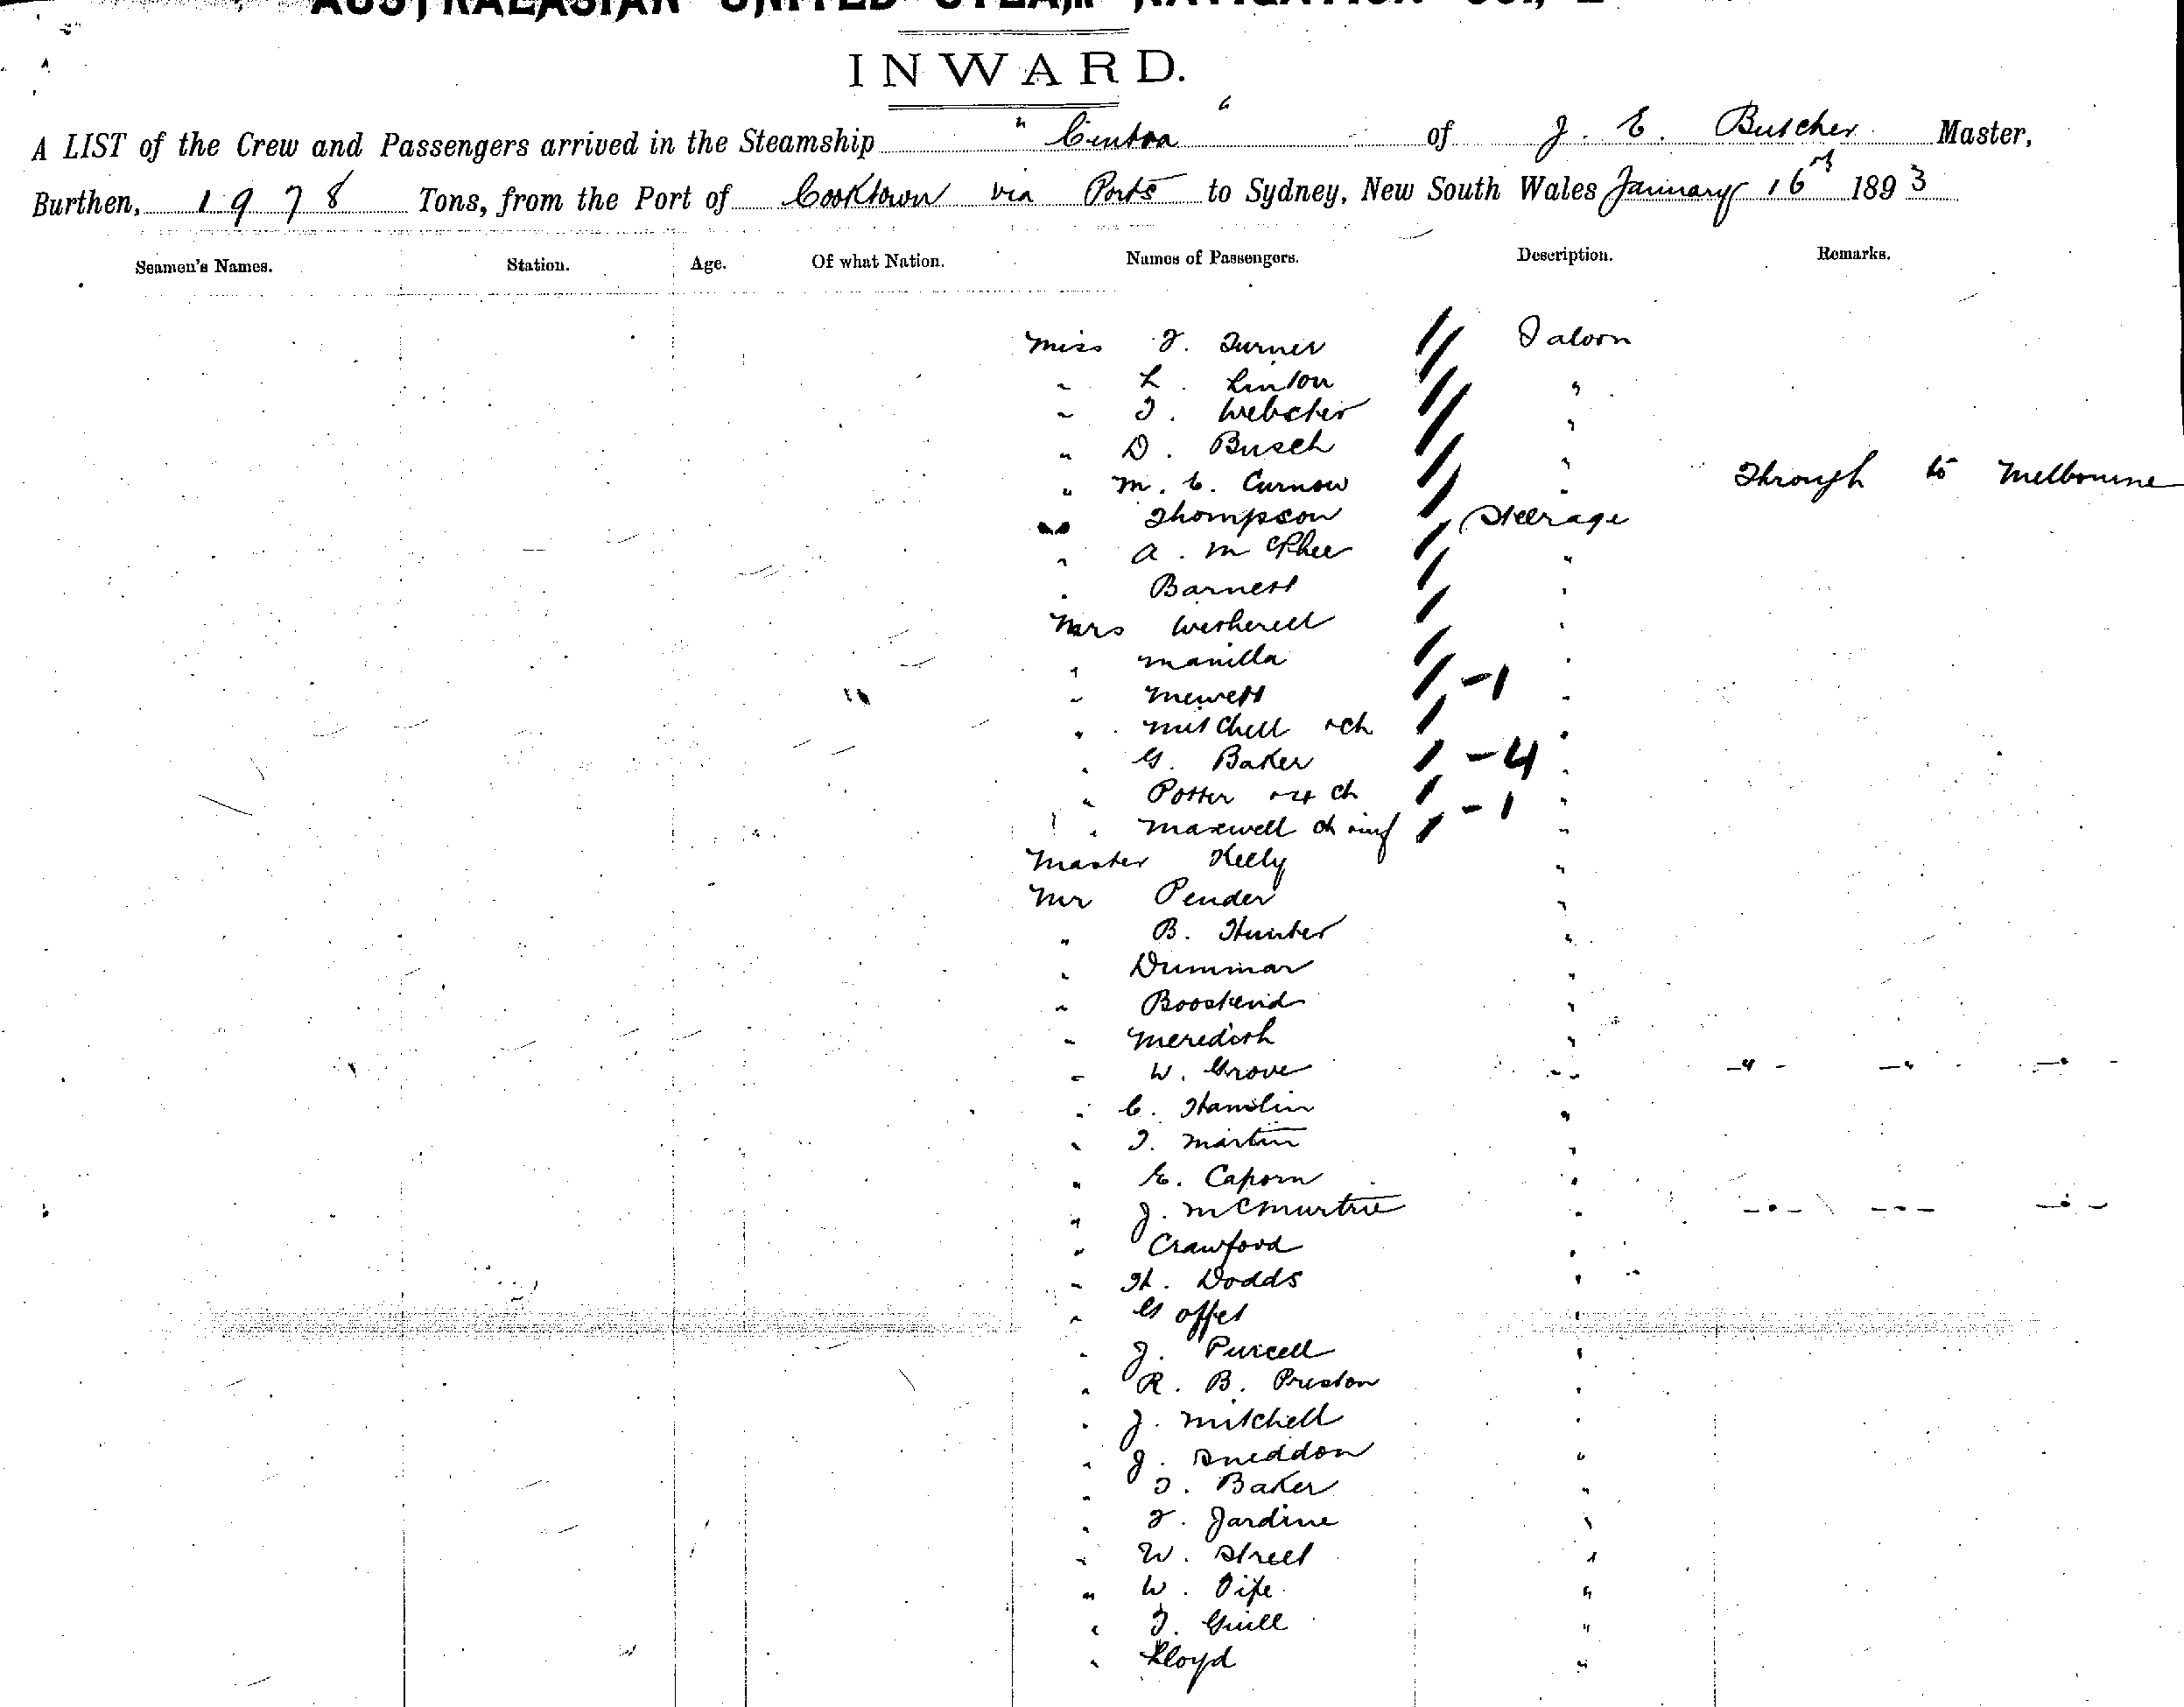 AUSTRALASIAN UNITED STEAM NAVIGATION CO., L
INWARD.
A LIST of the Crew and Passengers arrived in the Steamship "Cintra" of J. E. Butcher Master,
Burthen, 1978 Tons, from the Port of Cooktown via Ports to Sydney, New South Wales January 16th 1893
Seamen's Names. Station. Age. Of what Nation. Names of Passengers. Description. Remarks.
Miss F. Turner Saloon
" L. Linton "
" T. Webster "
" D. Busch "
" M. C. Curnow " Through to Melbourne
" Thompson Steerage
" A. McPhee "
" Barnett "
Mrs Wetherell "
" Manilla "
" Mewett -1 "
" Mitchell & ch "
" G. Baker -4 "
" Potter & 4 ch "
" Maxwell ch & inf -1 "
Master Kelly "
Mr Pender "
" B. Hunter "
" Dummar "
" "
" Meredith "
" W. Grove " " " "
" C. Hamlin "
" T. Martin "
" E. Caporn "
" J. McMurtrie " " " "
" Crawford "
" H. Dodds "
" Goffet "
" J. Purcell "
" R. B. Preston "
" J. Mitchell "
" J. Sneddon "
" T. Baker "
" F. Jardine "
" W. Street "
" W. "
" T. Guill "
" Lloyd "